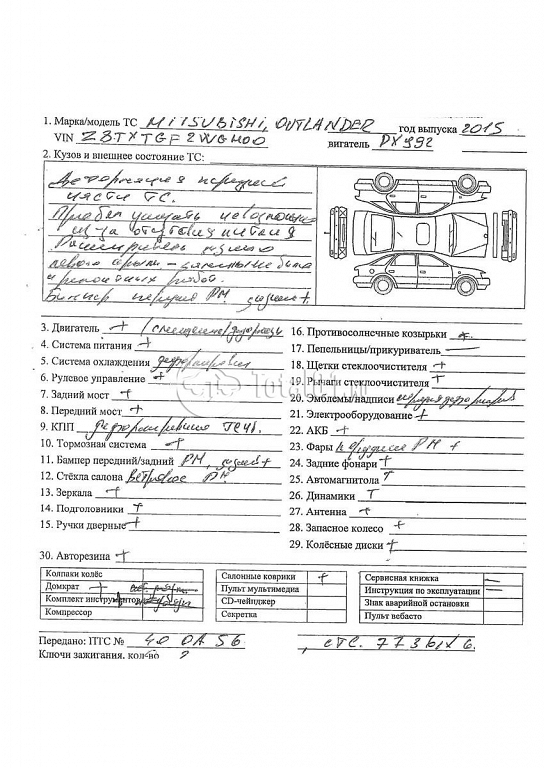 1. Марка/модель ТС MiTSUBiSHi, OUTLANDER год выпуска 2015
VIN Z8TXTGF2WGM00 вигатель DX992
2. Кузов и внешнее состояние ТС:
Деформация передней
части ТС.
Пробег узнать невозможно
из за отсутствия питания
Расширитель
левого крыла -
Бампер передний РМ, задний +
3. Двигатель + (смещение/
4. Система питания +
5. Система охлаждения
6. Рулевое управление +
7. Задний мост +
8. Передний мост +
9. КПП
10. Тормозная система +
11. Бампер передний/задний РМ, задний +
12. Стёкла салона ветровое РМ
13. Зеркала +
14. Подголовники +
15. Ручки дверные +
16. Противосолнечные козырьки +
17. Пепельницы/прикуриватель —
18. Щетки стеклоочистителя +
19. Рычаги стеклоочистителя +
20. Эмблемы/надписи
21. Электрооборудование +
22. АКБ +
23. Фары РМ +
24. Задние фонари +
25. Автомагнитола +
26. Динамики +
27. Антенна +
28. Запасное колесо +
29. Колёсные диски +
30. Авторезина +
Колпаки колёс
Домкрат +
Комплект инструментов +
Компрессор
Салонные коврики +
Пульт мультимедиа
CD-чейнджер
Секретка
Сервисная книжка —
Инструкция по эксплуатации —
Знак аварийной остановки
Пульт вебасто
Передано: ПТС № 40 OA 56 , СТС. 7736
Ключи зажигания. кол-во 2